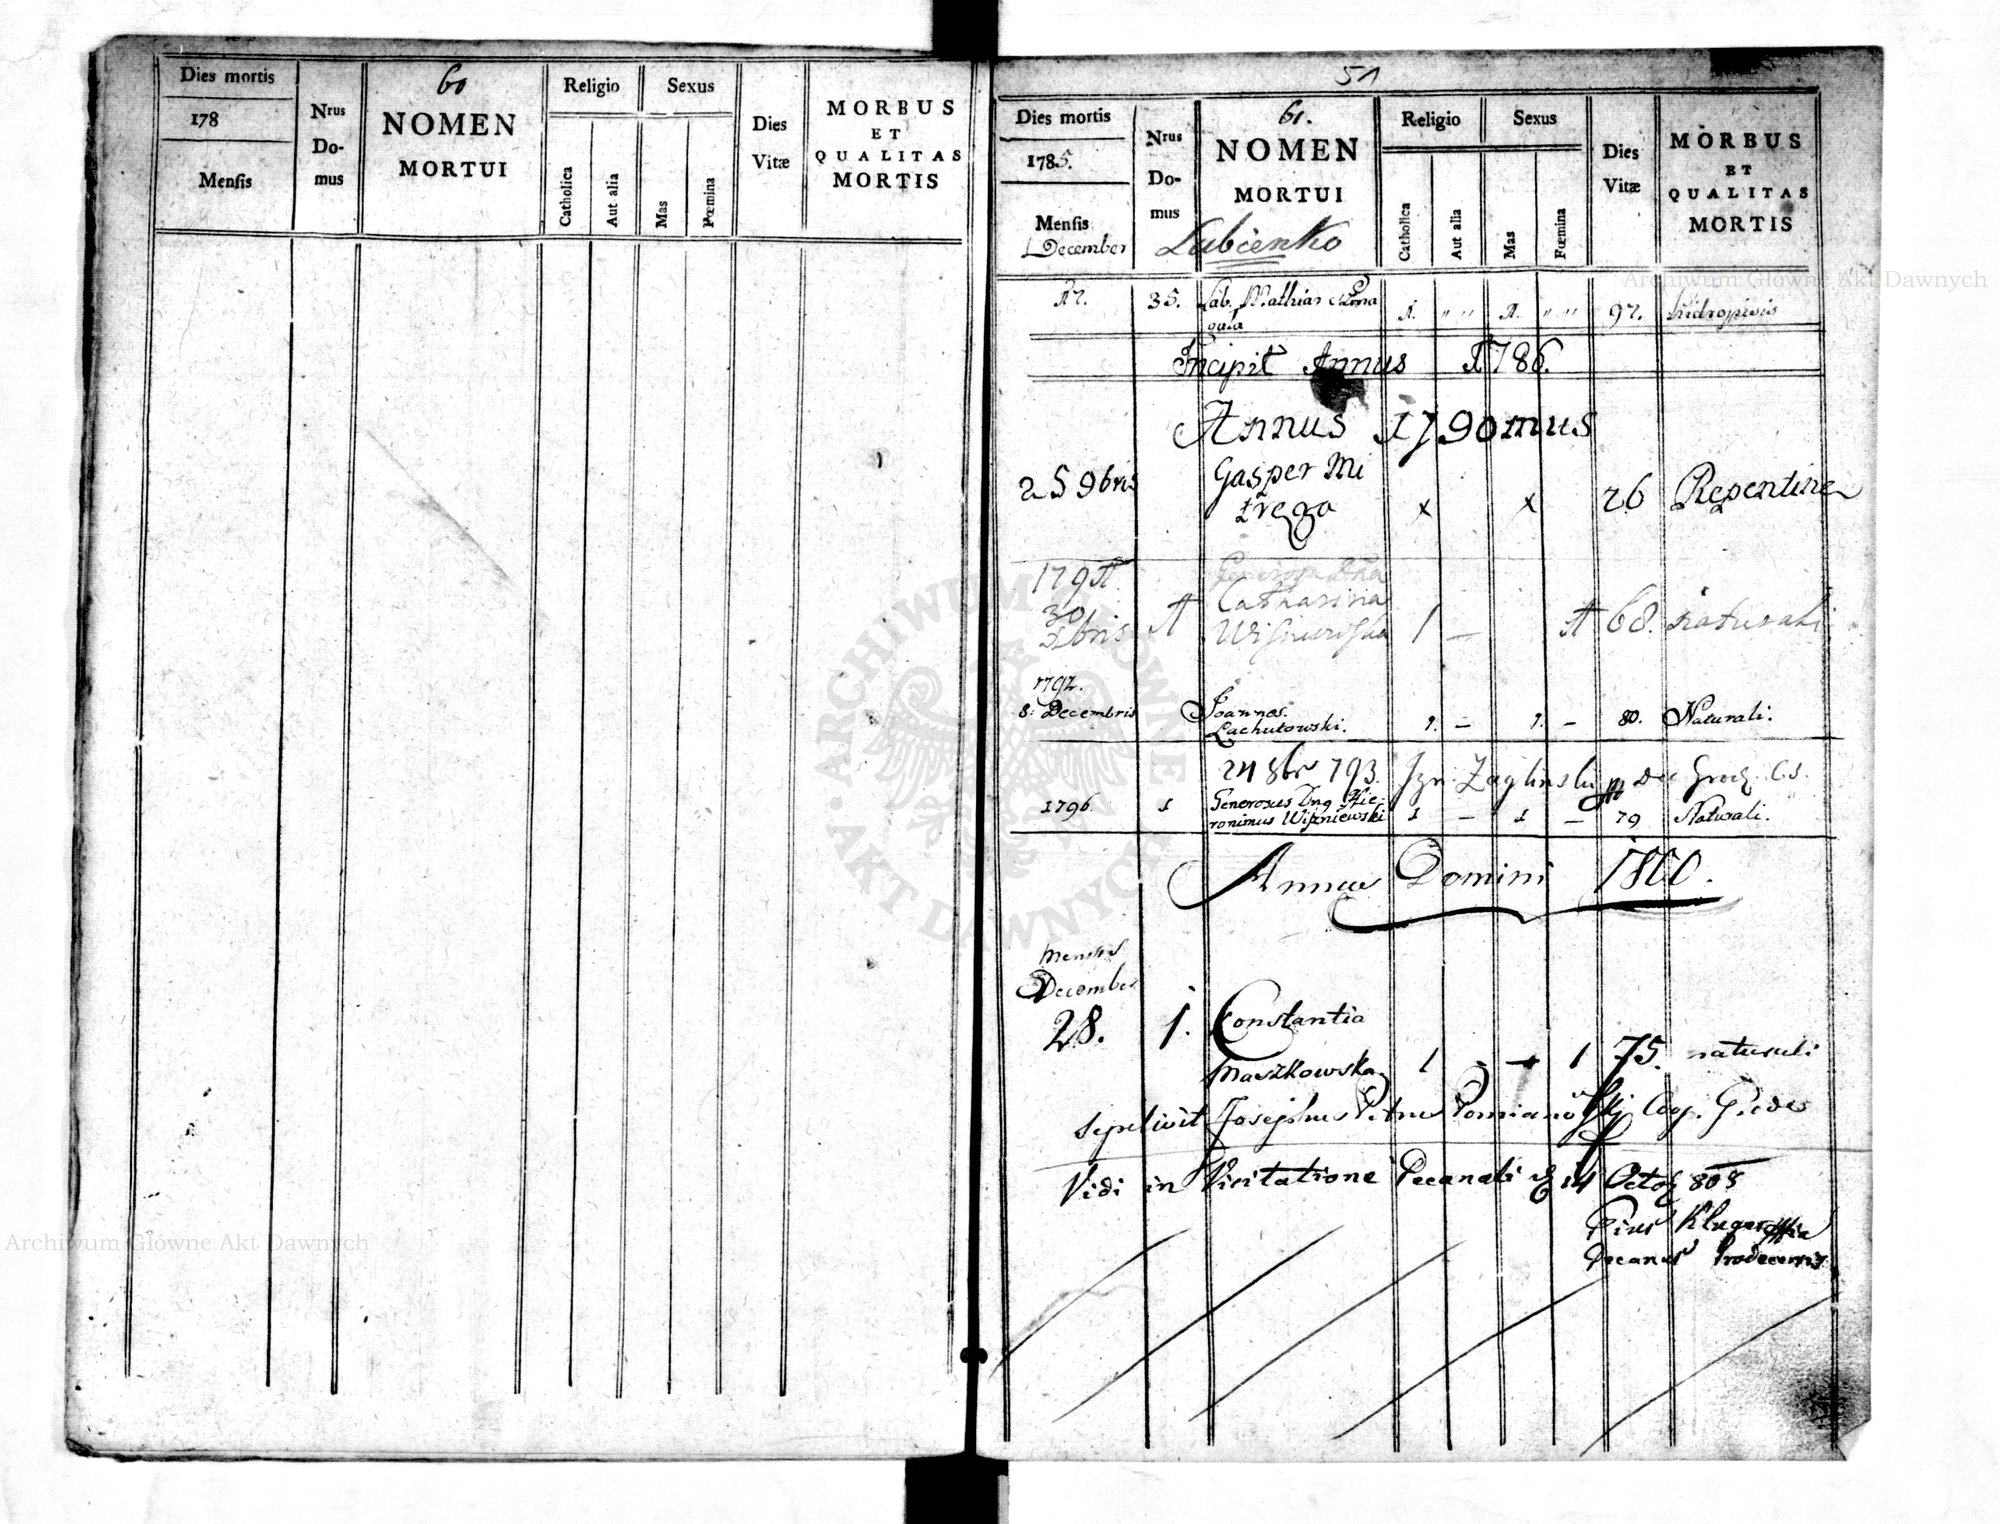 60
Dies mortis
178
Mensis
Nrus
Do-
mus
NOMEN
MORTUI
Religio
Catholica
Aut alia
Sexus
Mas
Fœmina
Dies
Vitæ
MORBUS
ET
QUALITAS
MORTIS
51
61.
Dies mortis
1785.
Mensis
December
Nrus
Do-
mus
NOMEN
MORTUI
Lubienko
Religio
Catholica
Aut alia
Sexus
Mas
Fœmina
Dies
Vitæ
MORBUS
ET
QUALITAS
MORTIS
17. 35. Lab. Mathias 1. " " 1. " " 97. hidropisis
Incipit Annus 1786.
Annus 1790mus
25 9bris Gasper Mi
trega x x 26 Repentine
1791
30 Catharina
Xbris 1 Wiśniewska 1 – 1 68. naturali
1792.
8: Decembris Joannes
Lachutowski. 1. – 1. – 80. Naturali.
24 8br 793. Ign. Zaglinski
1796. 1 Generosus Dnq Hie-
ronimus Wiszniewski 1 – 1 – 79 Naturali.
Annus Domini 1800.
Mensis
December
28. 1. Constantia
Maszkowska 1 - - 1 75. naturali
sepelivit Josephus Coop.
Vidi in Visitatione Decanali 14 Octob 808
Pius Kluger
Decanus
Archiwum Główne Akt Dawnych
Archiwum Główne Akt Dawnych
ARCHIWUM GŁÓWNE
AKT DAWNYCH